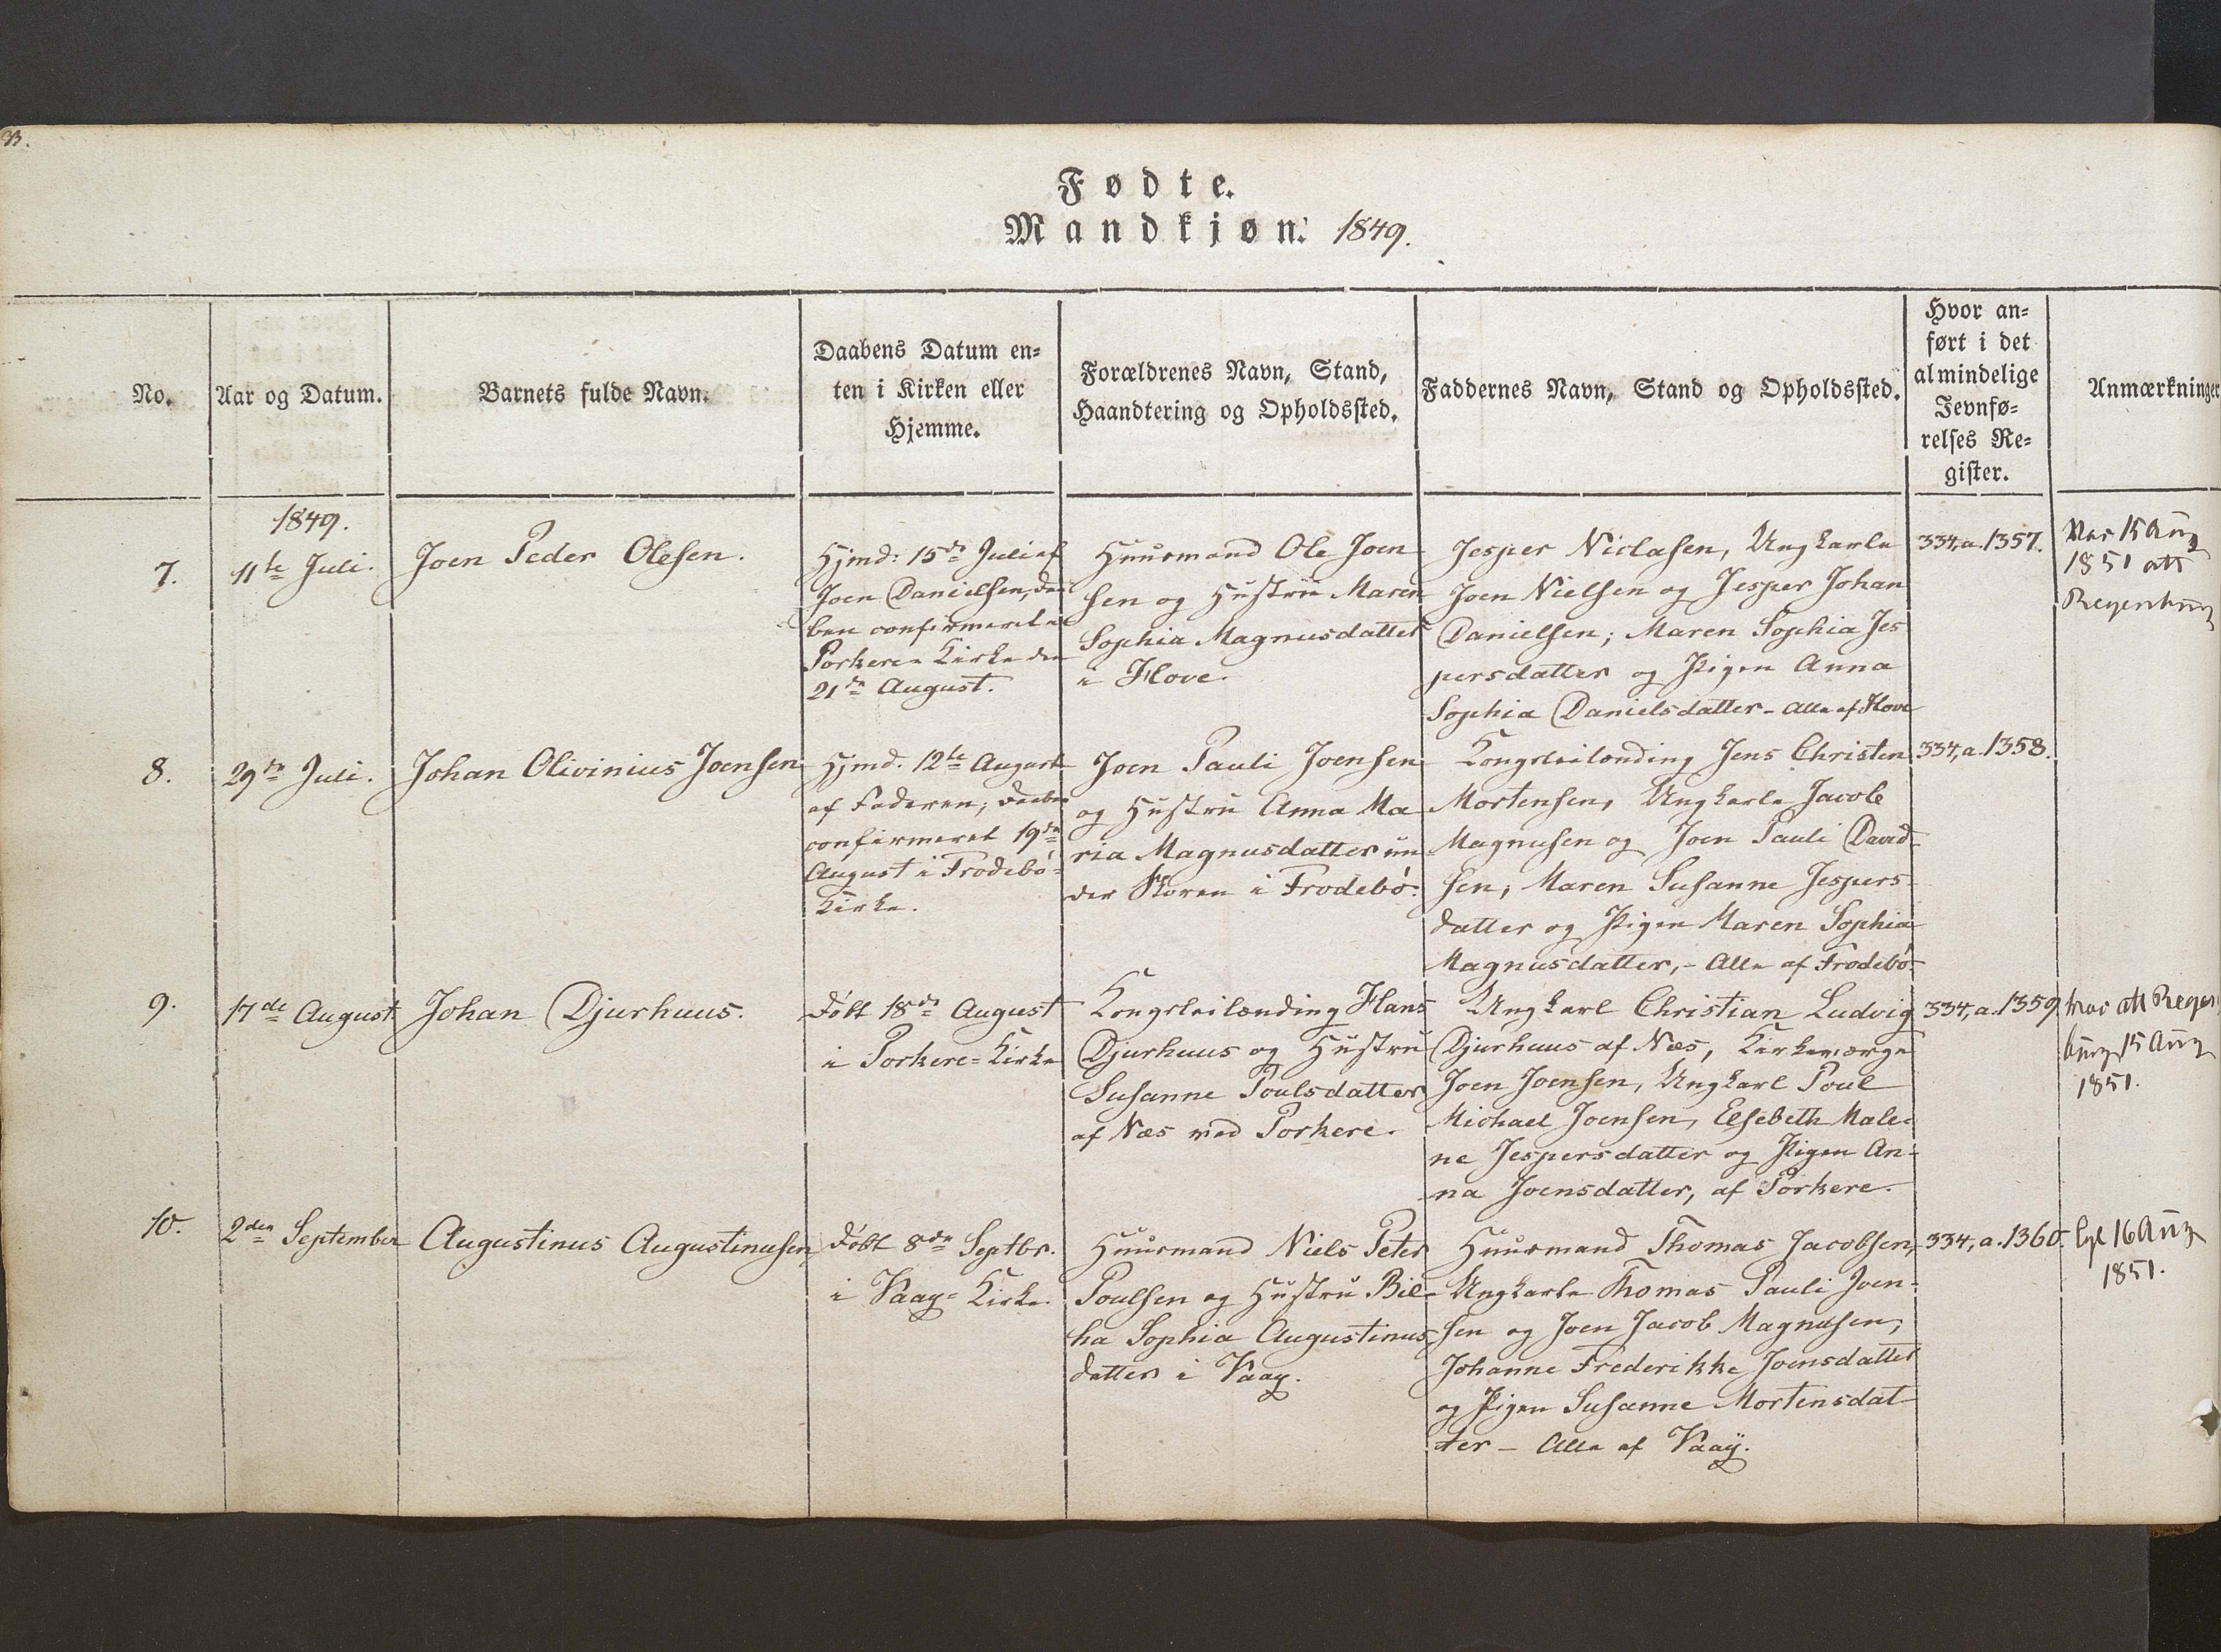 Fødte.
Mandkjøn. 1849.
No.
Aar og Datum.
Barnets fulde Navn.
Daabens Datum en-
ten i Kirken eller
Hjemme.
Forældrenes Navn, Stand,
Haandtering og Opholdssted.
Faddernes Navn, Stand og Opholdssted.
Hvor an-
ført i det
almindelige
Jevnfø-
relses Re-
gister.
Anmærkninger
1849.
7.
11te Juli.
Joen Peder Olesen.
Hjmd: 15de Juli af
Joen Danielsen, Daa
ben confirmeret
Porkere Kirke den
21de August.
Huusmand Ole Joen
sen og Hustru Maren
Sophia Magnusdatter
i Hove.
Jesper Niclasen, Ungkarle
Joen Nielsen og Jesper Johan
Danielsen; Maren Sophia Jes
persdatter og Pigen Anna
Sophia Danielsdatter - Alle af Hove
334,a.1357.
Vac 15 Aug
1851 att
8.
29de Juli.
Johan Olivinius Joensen
Hjmd. 12te August
af Faderen; Daaben
confirmeret 19de
August i Frodebö-
Kirke.
Joen Pauli Joensen
og Hustru Anna Ma
ria Magnusdatter un
der Skoren i Frodebö.
Kongsleilænding Jens Christen
Mortensen, Ungkarle Jacob
Magnusen og Joen Pauli David
sen, Maren Susanne Jespers
datter og Pigen Maren Sophia
Magnusdatter, - Alle af Frodebö.
334,a.1358.
9.
17de August
Johan Djurhuus.
Döbt 18de August
i Porkere-Kirke
Kongsleilænding Hans
Djurhuus og Hustru
Susanne Poulsdatter
af Næs ved Porkere.
Ungkarl Christian Ludvig
Djurhuus af Næs, Kirkeværge
Joen Joensen, Ungkarl Poul
Michael Joensen, Elsebeth Male-
ne Jespersdatter og Pigen An-
na Joensdatter, af Porkere.
334,a.1359
vac att Regen
burg 15 Aug
1851.
10.
2den September
Augustinus Augustinusen
Döbt 8de Septbr.
i Vaag-Kirke.
Huusmand Niels Peter
Poulsen og Hustru Bil-
ha Sophia Augustinus
datter i Vaag.
Huusmand Thomas Jacobsen,
Ungkarle Thomas Pauli Joen-
sen og Joen Jacob Magnusen,
Johanne Frederikke Joensdatter
og Pigen Susanne Mortensdat
ter - Alle af Vaag.
334,a.1360.
16 Aug
1851.